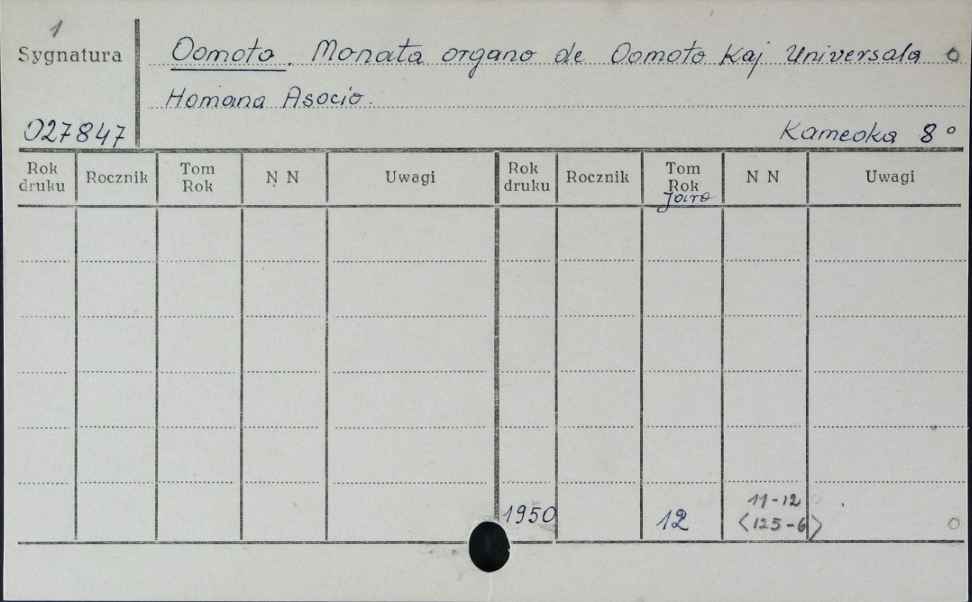 1
Sygnatura
Oomoto. Monata organo de Oomoto Kaj Universala
Homana Asocio.
027847
Kameoka 8°
Rok druku Rocznik Tom Rok N N Uwagi Rok druku Rocznik Tom Rok N N Uwagi
Jaro
11-12
1950 12 <125-6>